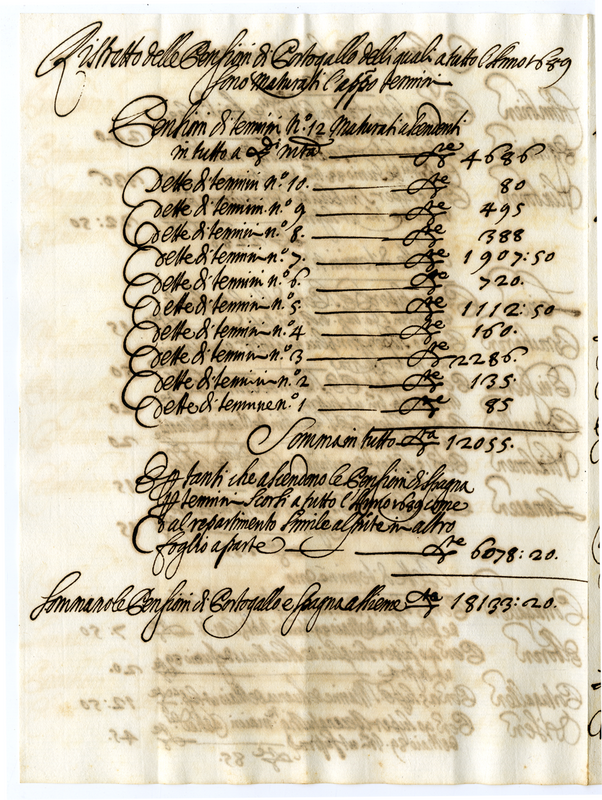 Ristretto delle Pensioni di Portogallo delli quali a tutto l'Anno 1689
sono Maturati l'app.ⁱ termini
Pensioni di termini N.º 12 Maturati ascendenti
in tutto a mta ▽te 4686
Dette di termini n.º 10. ▽te 80
Dette di termini n.º 9 ▽te 495
Dette di termini n.º 8. ▽te 388
Dette di termini n.º 7. ▽te 1907:50
Dette di termini n.º 6. ▽te 720.
Dette di termini n.º 5 ▽te 1112:50
Dette di termini n.º 4 ▽te 160.
Dette di termini n.º 3 ▽te 2286.
Dette di termini n.º 2 ▽te 135.
Dette di termine n.º 1 ▽te 85
Somma in tutto ▽ta 12055.
E tanti che ascendono le Pensioni di Spagna
termini scorsi a tutto l'Anno 1689 come
dal repartimento simile al pnte in altro
foglio a parte ▽te 6078:20.
Sommano le Pensioni di Portogallo e Spagna assieme ▽te 18133:20.